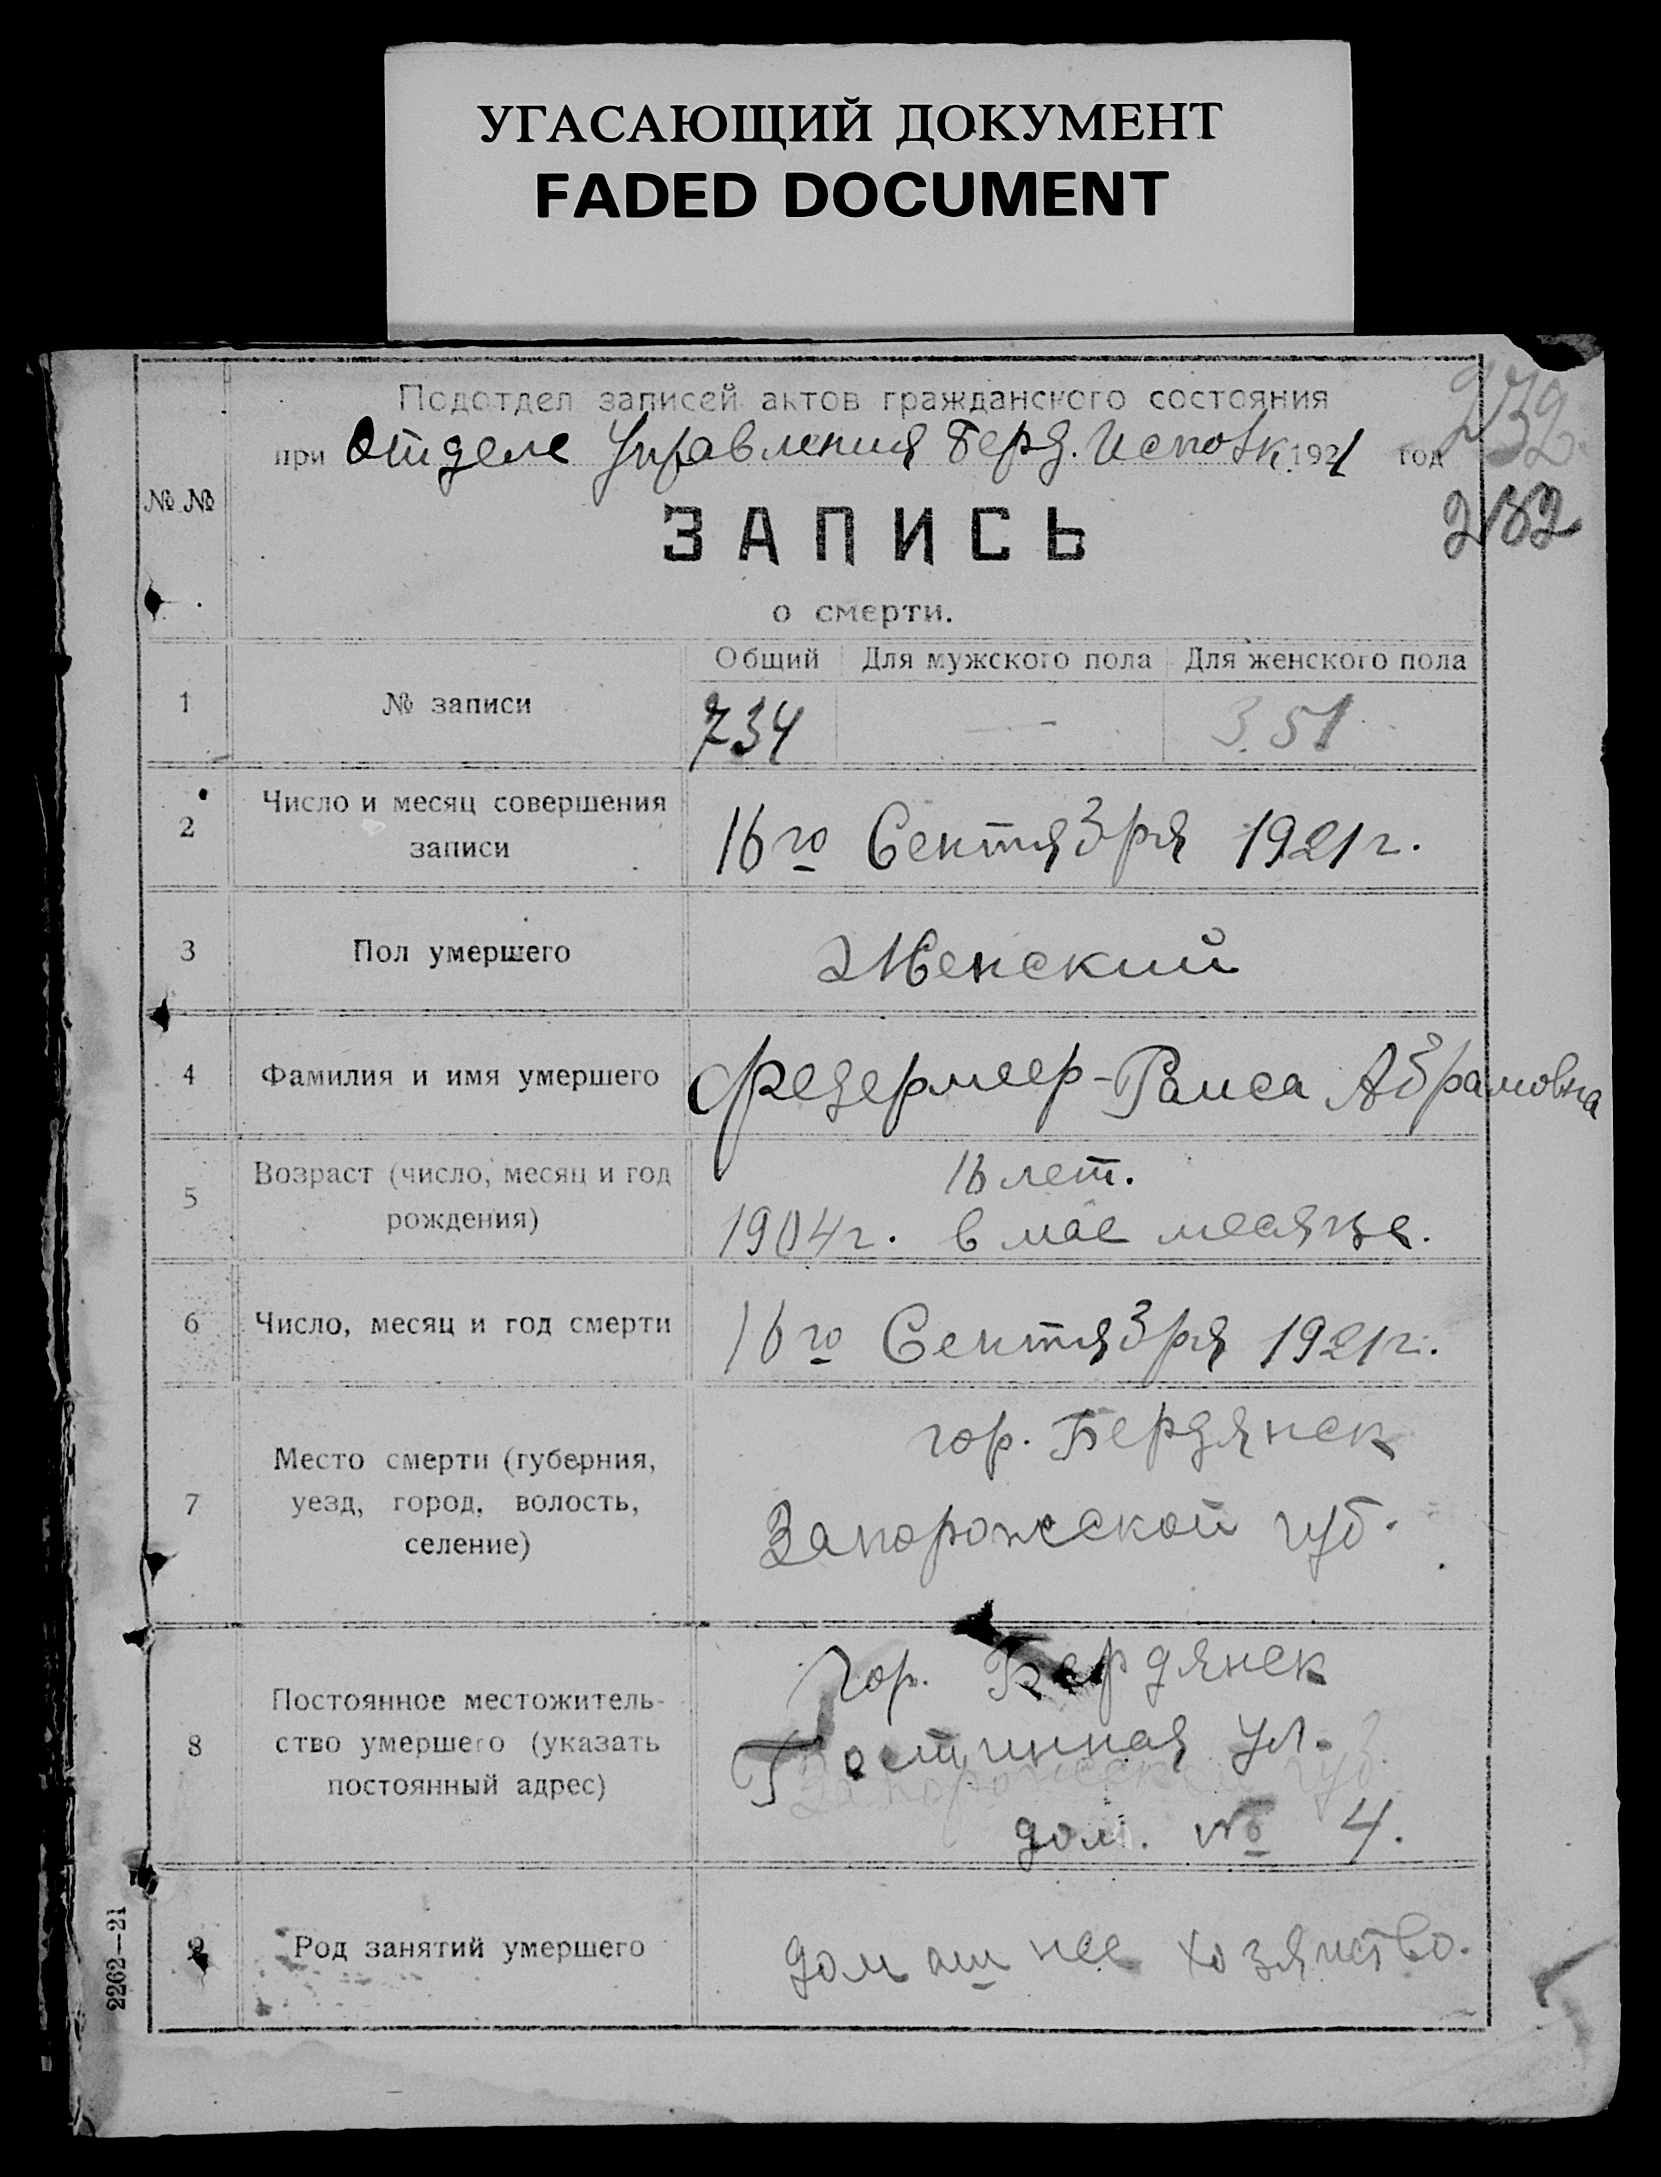 УГАСАЮЩИЙ ДОКУМЕНТ
FADED DOCUMENT
232
Подотдел записей актов гражданского состояния
при Отделе Управления Берд. Исполк. 1921 год
№ №
232
ЗАПИСЬ
о смерти.
Общий Для мужского пола Для женского пола
1 № записи 734 — 351
2 Число и месяц совершения
записи
16го Сентября 1921 г.
3 Пол умершего Женский
4 Фамилия и имя умершего Федермеер-Раиса Абрамовна
5 Возраст (число, месяц и год
рождения)
16 лет.
1904 г. в мае месяце.
6 Число, месяц и год смерти 16го Сентября 1921 г.
7 Место смерти (губерния,
уезд, город, волость,
селение)
гор. Бердянск
Запорожской губ.
8 Постоянное местожитель-
ство умершего (указать
постоянный адрес)
Гор. Бердянск
Гостинная ул.
Запорожской губ.
дом. № 4.
9 Род занятий умершего домашнее хозяйство.
2262—21